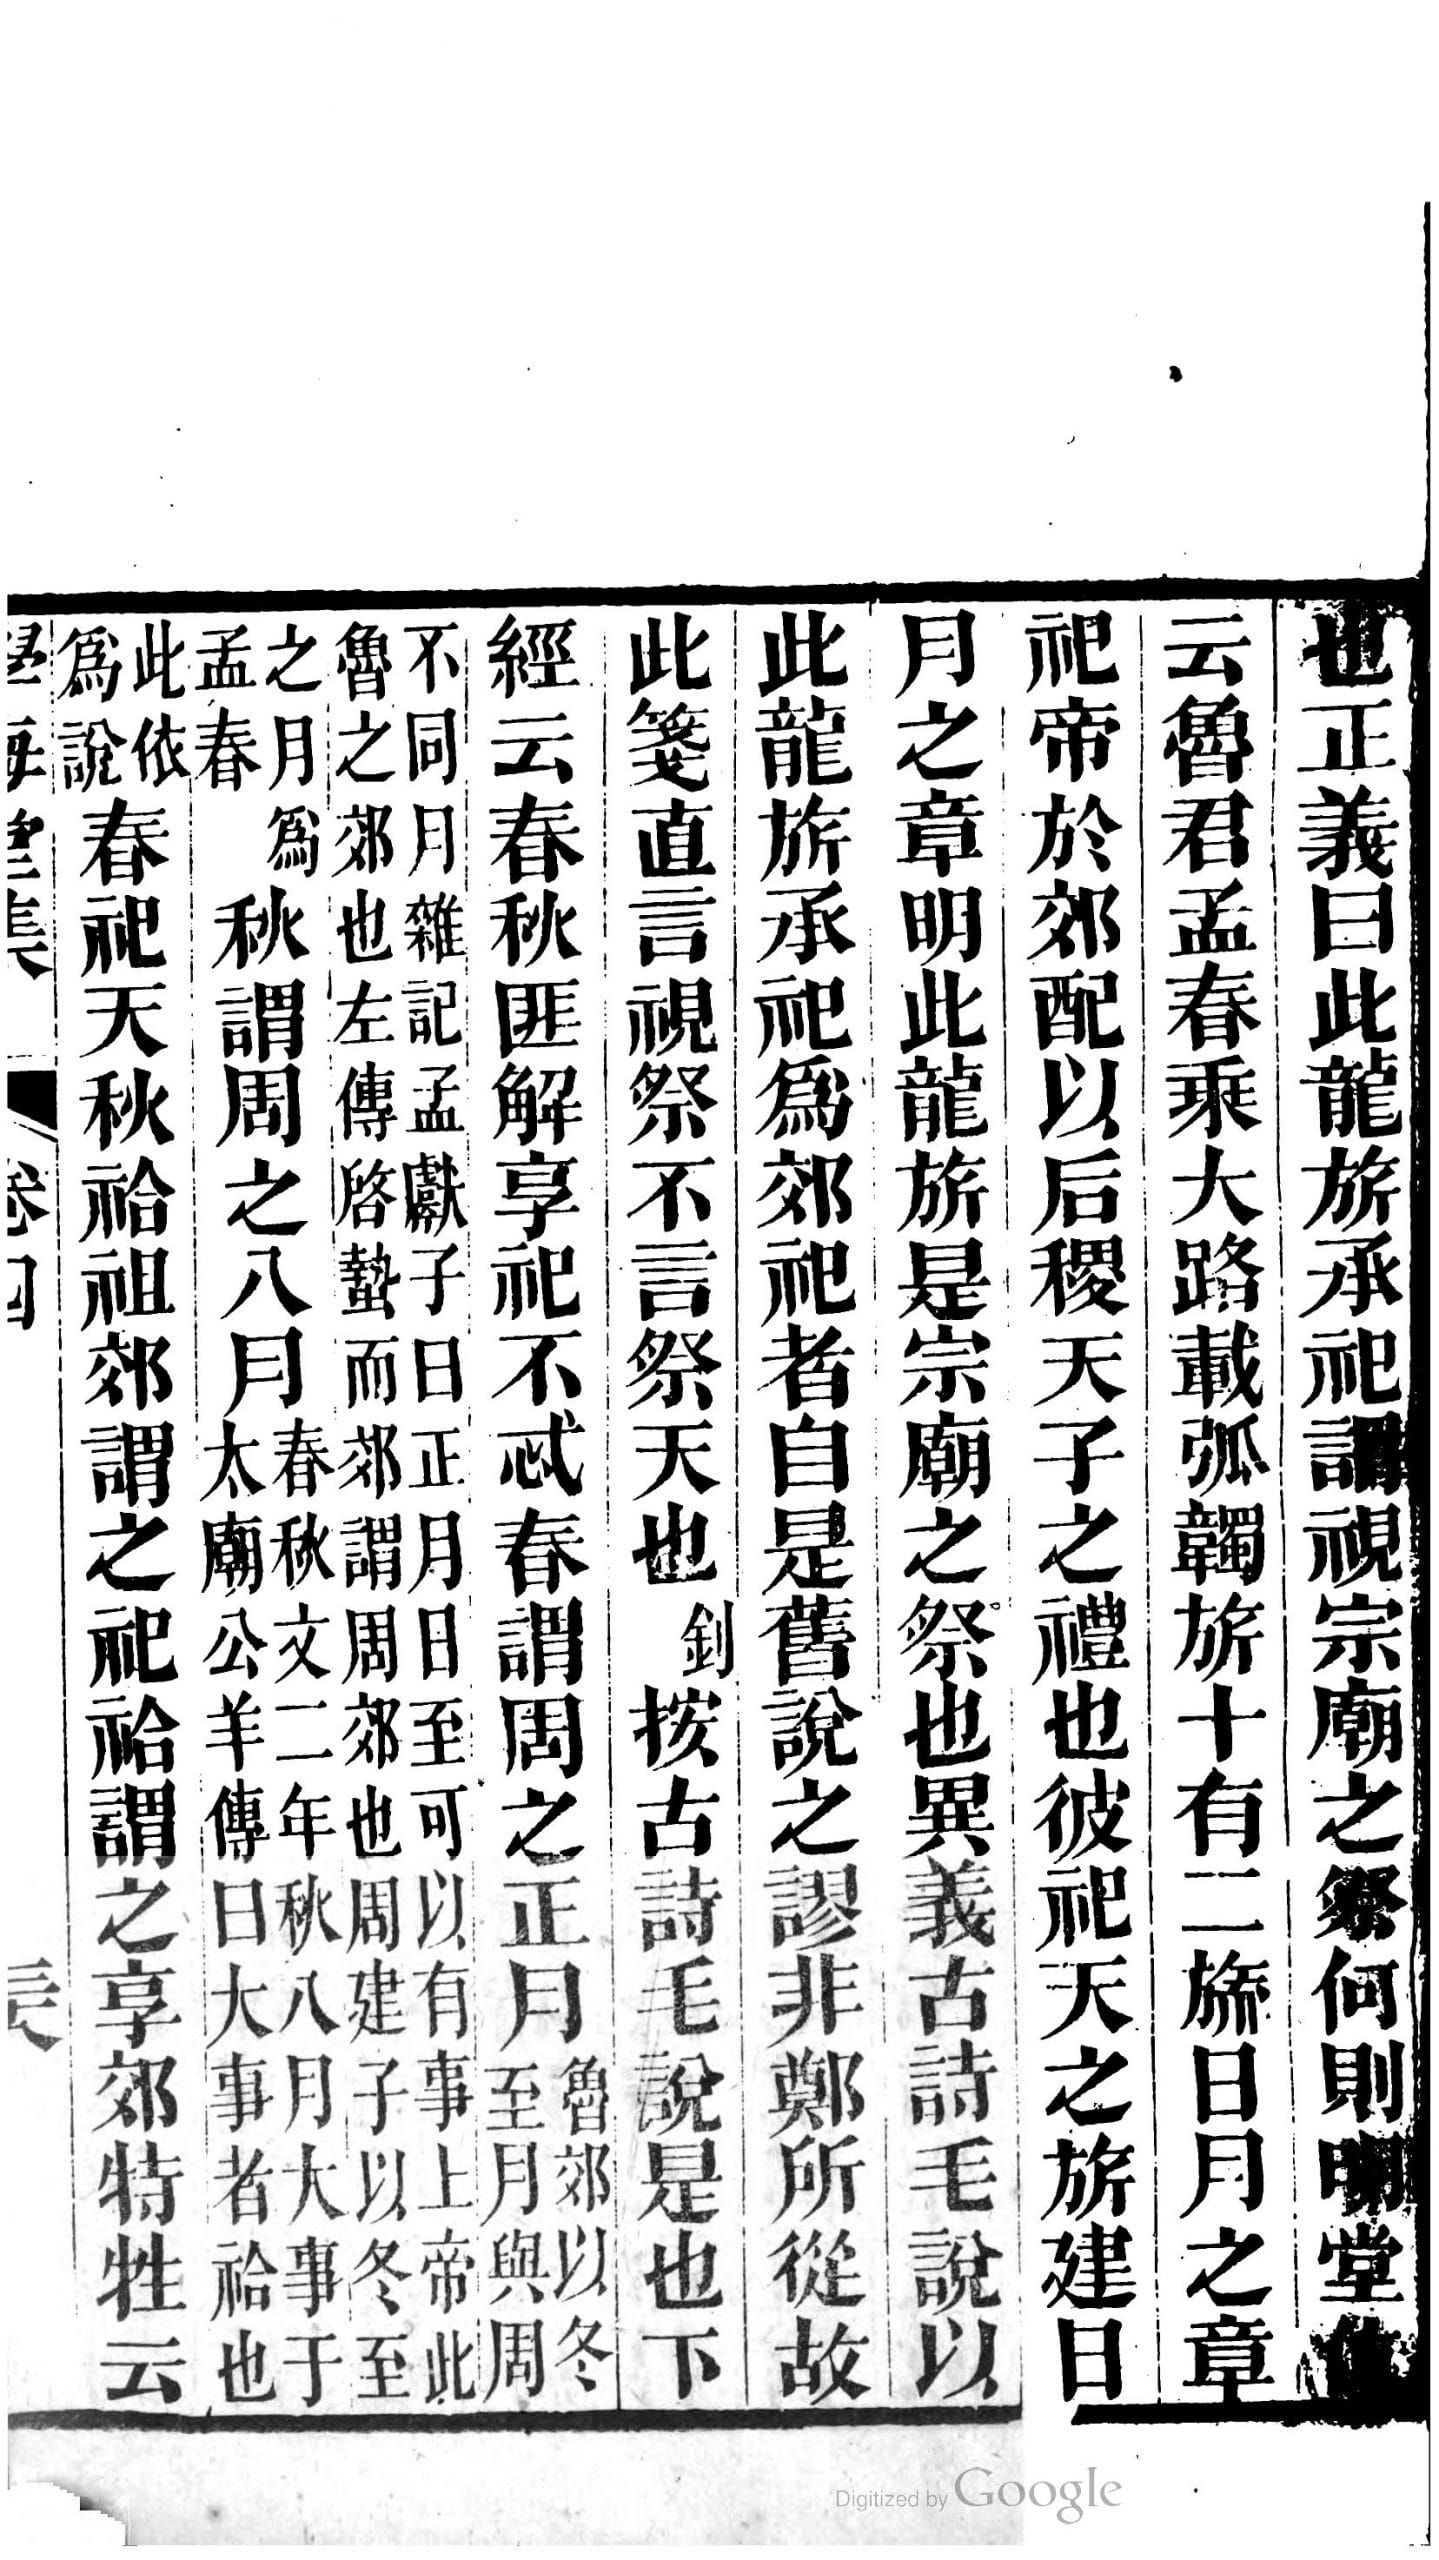 也正義曰此龍旂承祀謂視宗廟之祭何則明堂
云魯君孟春乘大路載弧韣旂十有二旒日月之章
祀帝於郊配以后稷天子之禮也彼祀天之旂建日
月之章明此龍旂是宗廟之祭也異義古詩毛說以
此龍旂承祀爲郊祀者自是舊說之謬非鄭所從故
此箋直言視祭不言祭天也釗按古詩毛說是也下
經云春秋匪解享祀不忒春謂周之正月魯郊以冬
至月與周
不同月雜記孟獻子曰正月日至可以有事上帝此
魯之郊也左傳啓蟄而郊謂周郊也周建子以冬至
之月爲
孟春
秋謂周之八月春秋文二年秋八月大事于
太廟公羊傳曰大事者祫也
此依
爲說
春祀天秋祫祖郊謂之祀祫謂之享郊特牲云
學海堂集 卷四
Digitized by Google